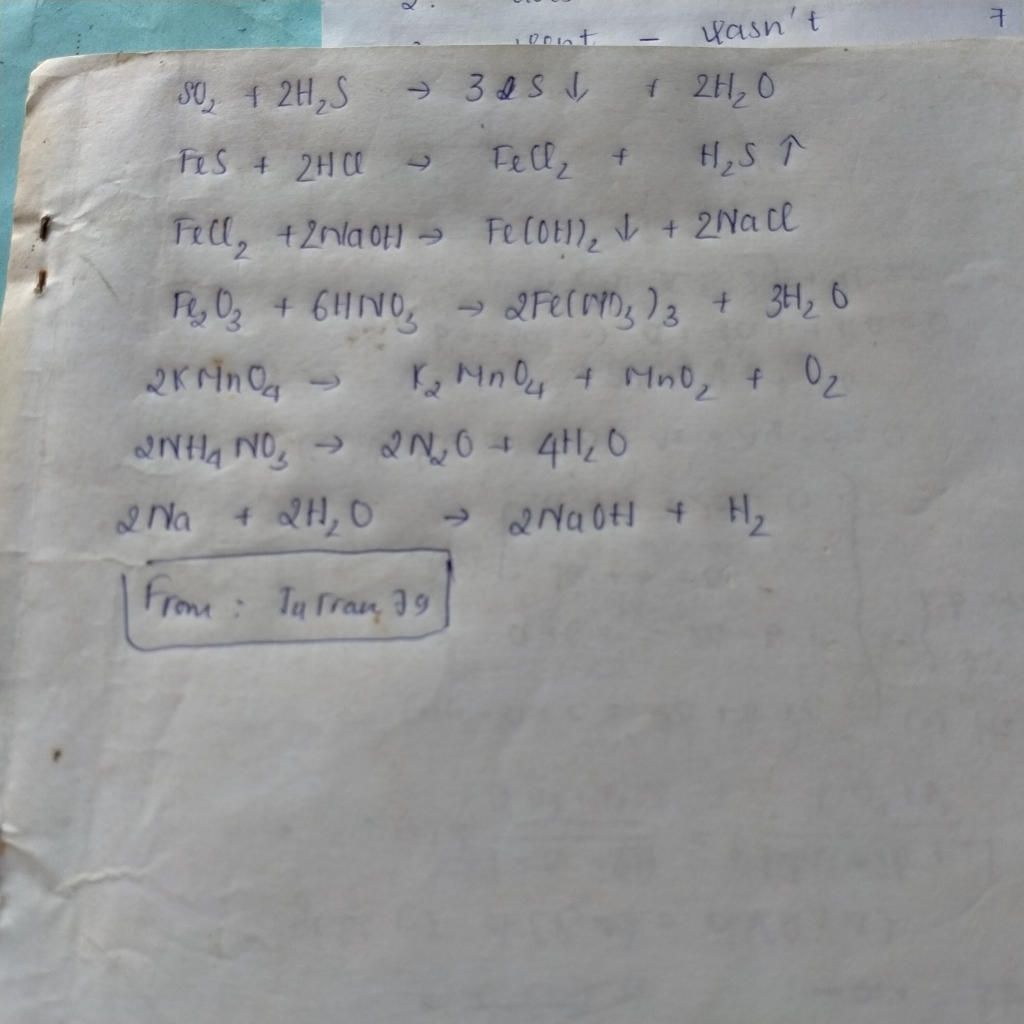 2.
went - wasn't 7
SO₂ + 2H₂S → 3S ↓ + 2H₂O
FeS + 2HCl → FeCl₂ + H₂S ↑
FeCl₂ + 2NaOH → Fe(OH)₂ ↓ + 2NaCl
Fe₂O₃ + 6HNO₃ → 2Fe(NO₃)₃ + 3H₂O
2KMnO₄ → K₂MnO₄ + MnO₂ + O₂
2NH₄NO₃ → 2N₂O + 4H₂O
2Na + 2H₂O → 2NaOH + H₂
From: